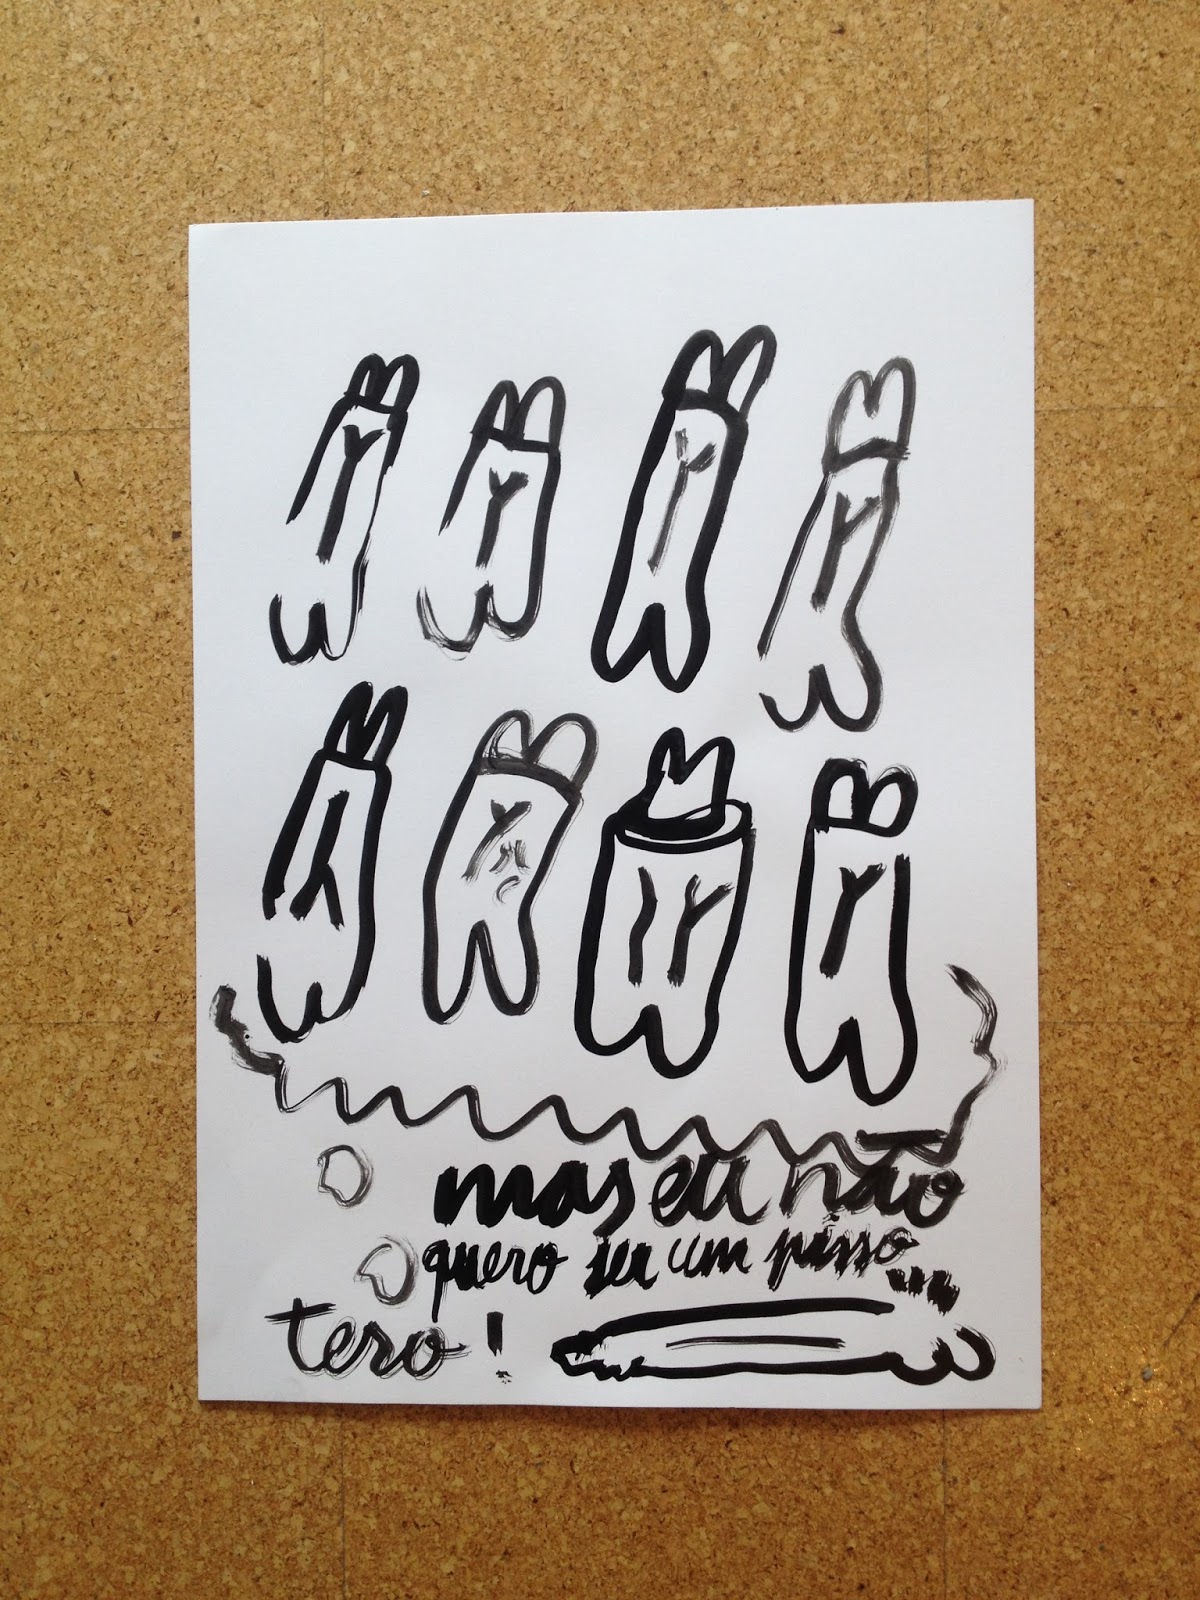 mas eu não
quero ser um pisso...
tero!